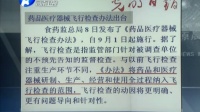 药品医疗器械飞行检查办法出台
食药监总局8日发布了《药品医疗器械
飞行检查办法》，自9月1日起施行。据了
解，飞行检查是指监管部门针对被调查单位
的不预先告知的监督检查。与以前飞行检查
注重生产环节不同，《办法》将药品和医疗
器械研制、生产、经营和使用全过程纳入飞
行检查的范围，飞行检查的启动将更为明确，
更有问题导向和针对性。